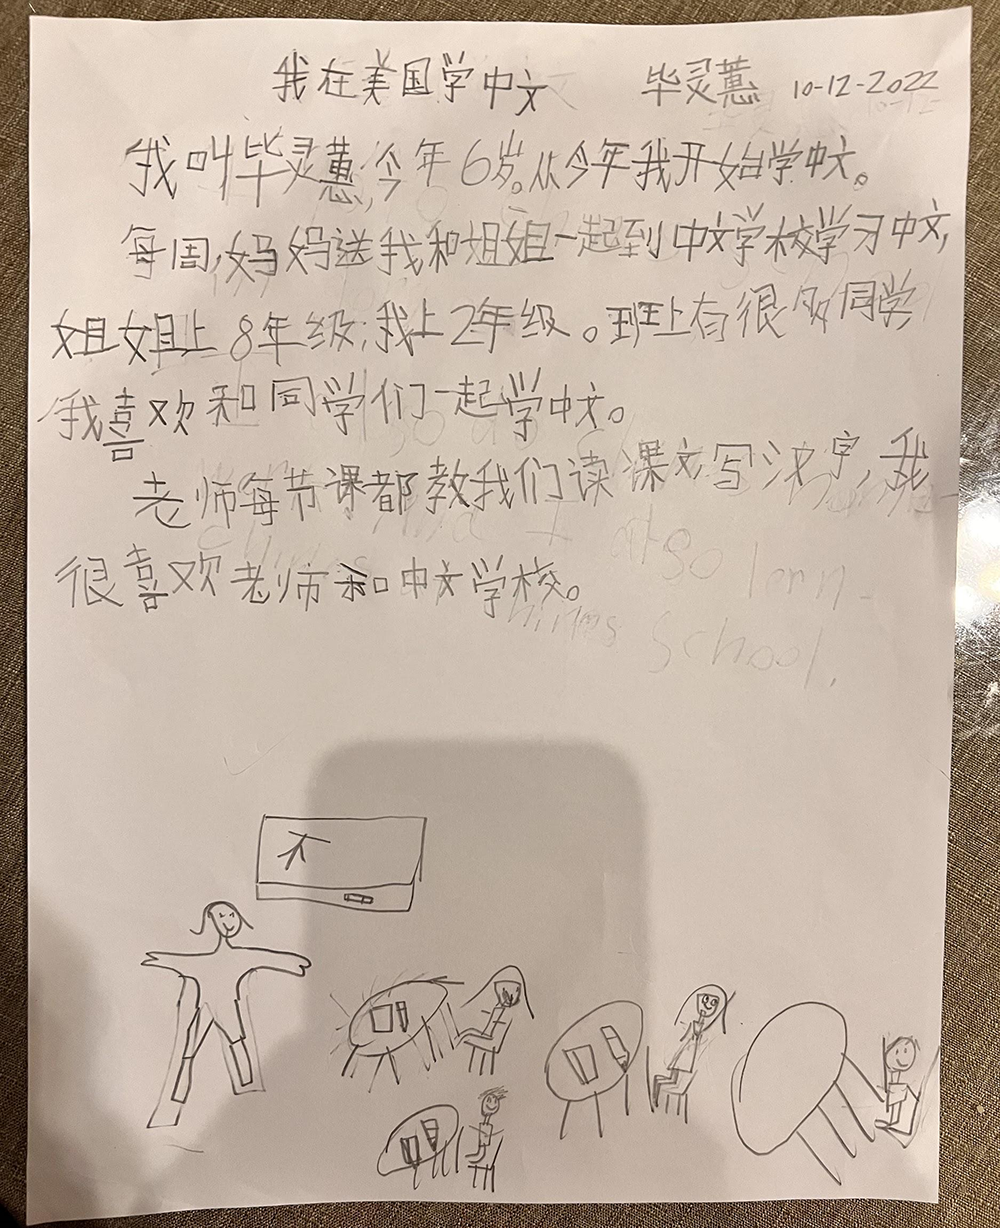 我在美国学中文 毕灵蕙 10-12-2022
我叫毕灵蕙,今年6岁。从今年我开始学中文。
每周,妈妈送我和姐姐一起到中文学校学习中文,
姐姐上8年级;我上2年级。班上有很多同学
我喜欢和同学们一起学中文。
老师每节课都教我们读课文写汉字,我
很喜欢老师和中文学校。
also lern
School.
不